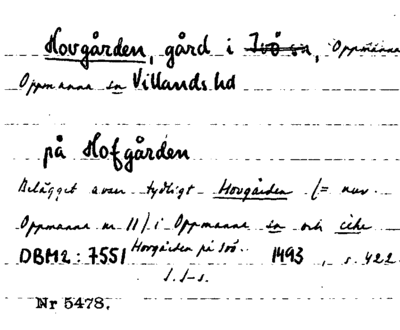 Hovgården, gård i Ivö sn, Oppmanna
Oppmanna sn Villands hd
på Hofgården
Belägget avser tydligt Hovgården (= nuv.
Oppmanna nr 11) i Oppmanna sn och icke
DBM2: 7551 Hovgården på Ivö. 1493, s. 422.
Nr 5478.